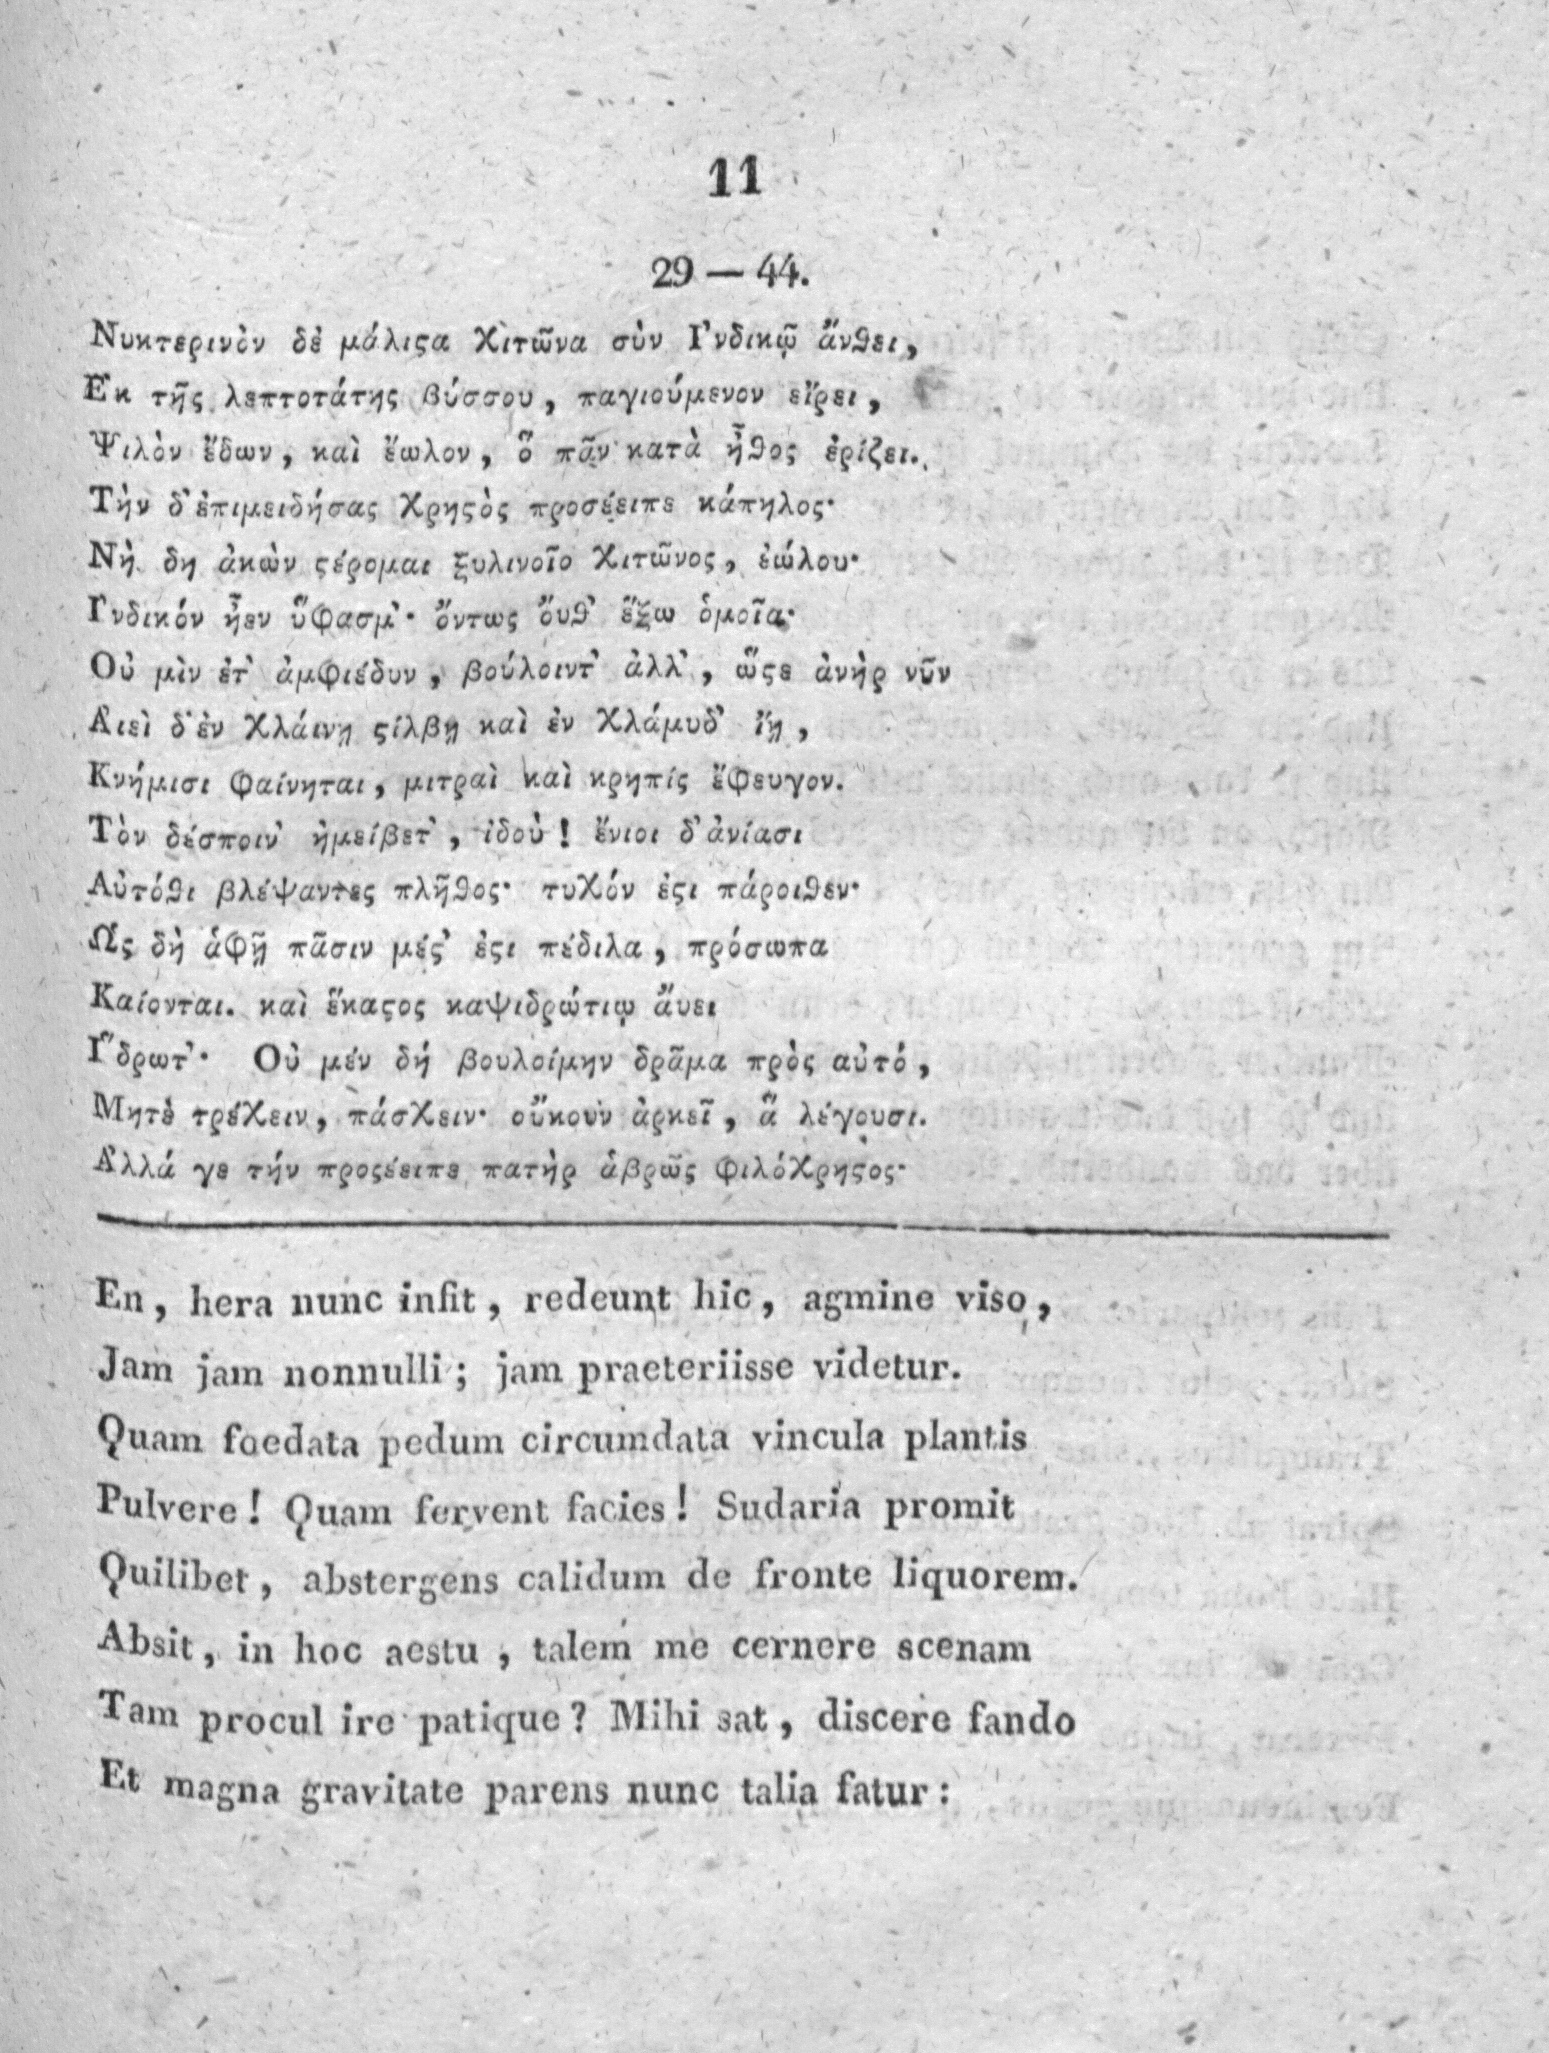 11
29 — 44.
Νυκτερινὸν δὲ μάλιϛα Χιτῶνα σὺν Ι᾿νδικῷ ἄνθει,
Ε᾿κ τῆς λεπτοτάτης βύσσου, παγιούμενον εἴρει,
Ψιλὸν ἔδων, καὶ ἔωλον, ὃ πᾶν κατὰ ἦθος ἐρίζει.
Τὴν δ᾽ἐπιμειδήσας Χρηϛὸς προσέειπε κάπηλος·
Νὴ δη ἀκὼν ϛέρομαι ξυλινοῖο Χιτῶνος, ἑώλου·
Ι᾿νδικόν ἦεν ὕφασμ᾽· ὄντως ὄυθ᾽ ἕξω ὁμοῖα·
Οὐ μὶν ἐτ᾽ ἀμφιέδυν, βούλοιντ᾽ ἀλλ᾽, ὥϛε ἀνὴρ νῦν
Α᾿ιεὶ δ᾽ἐν Χλάινῃ ϛίλβῃ καὶ ἐν Χλάμυδ᾽ ἴῃ,
Κνήμισι φαίνηται, μιτραὶ καὶ κρηπίς ἔφευγον.
Τὸν δέσποιν᾽ ἠμείβετ᾽, ἰδοὺ! ἔνιοι δ᾽ἀνίασι
Αὐτόθι βλέψαντες πλῆθος· τυΧόν ἐϛι πάροιθεν·
Ω῾ς δὴ ἁφῇ πᾶσιν μέϛ᾽ ἐϛι πέδιλα, πρόσωπα
Καίονται. καὶ ἕκαϛος καψιδρώτιῳ ἄυει
Ι῞δρωτ᾽· Οὐ μέν δή βουλοίμην δρᾶμα πρὸς αὐτό,
Μητὲ τρέΧειν, πάσΧειν· οὔκουν ἀρκεῖ, ἃ λέγουσι.
Α᾿λλά γε τήν προςέειπε πατὴρ ἁβρῶς φιλόΧρηϛος·
En, hera nunc infit, redeunt hic, agmine viso,
Jam jam nonnulli; jam praeteriisse videtur.
Quam foedata pedum circumdata vincula plantis
Pulvere! Quam fervent facies! Sudaria promit
Quilibet, abstergens calidum de fronte liquorem.
Absit, in hoc aestu, talem me cernere scenam
Tam procul ire patique? Mihi sat, discere fando
Et magna gravitate parens nunc talia fatur: